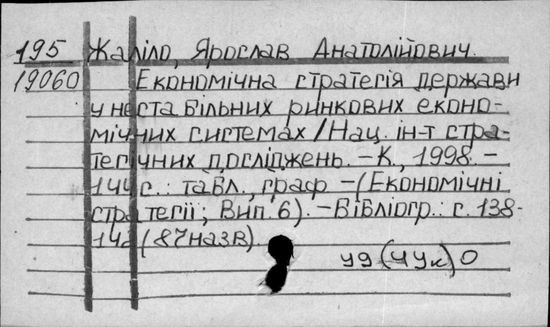 195 Жаліло, Ярослав Анатолійович.
19060 Економічна стратегія держави
у нестабільних ринкових еконо-
мічних системах / Нац. ін-т стра-
тегічних досліджень. – К., 1998. –
144 с. : табл., граф – (Економічні
стратегії ; Вип. 6). – Бібліогр.: с. 138-
142 (87 назв).
у9(4Ук)0